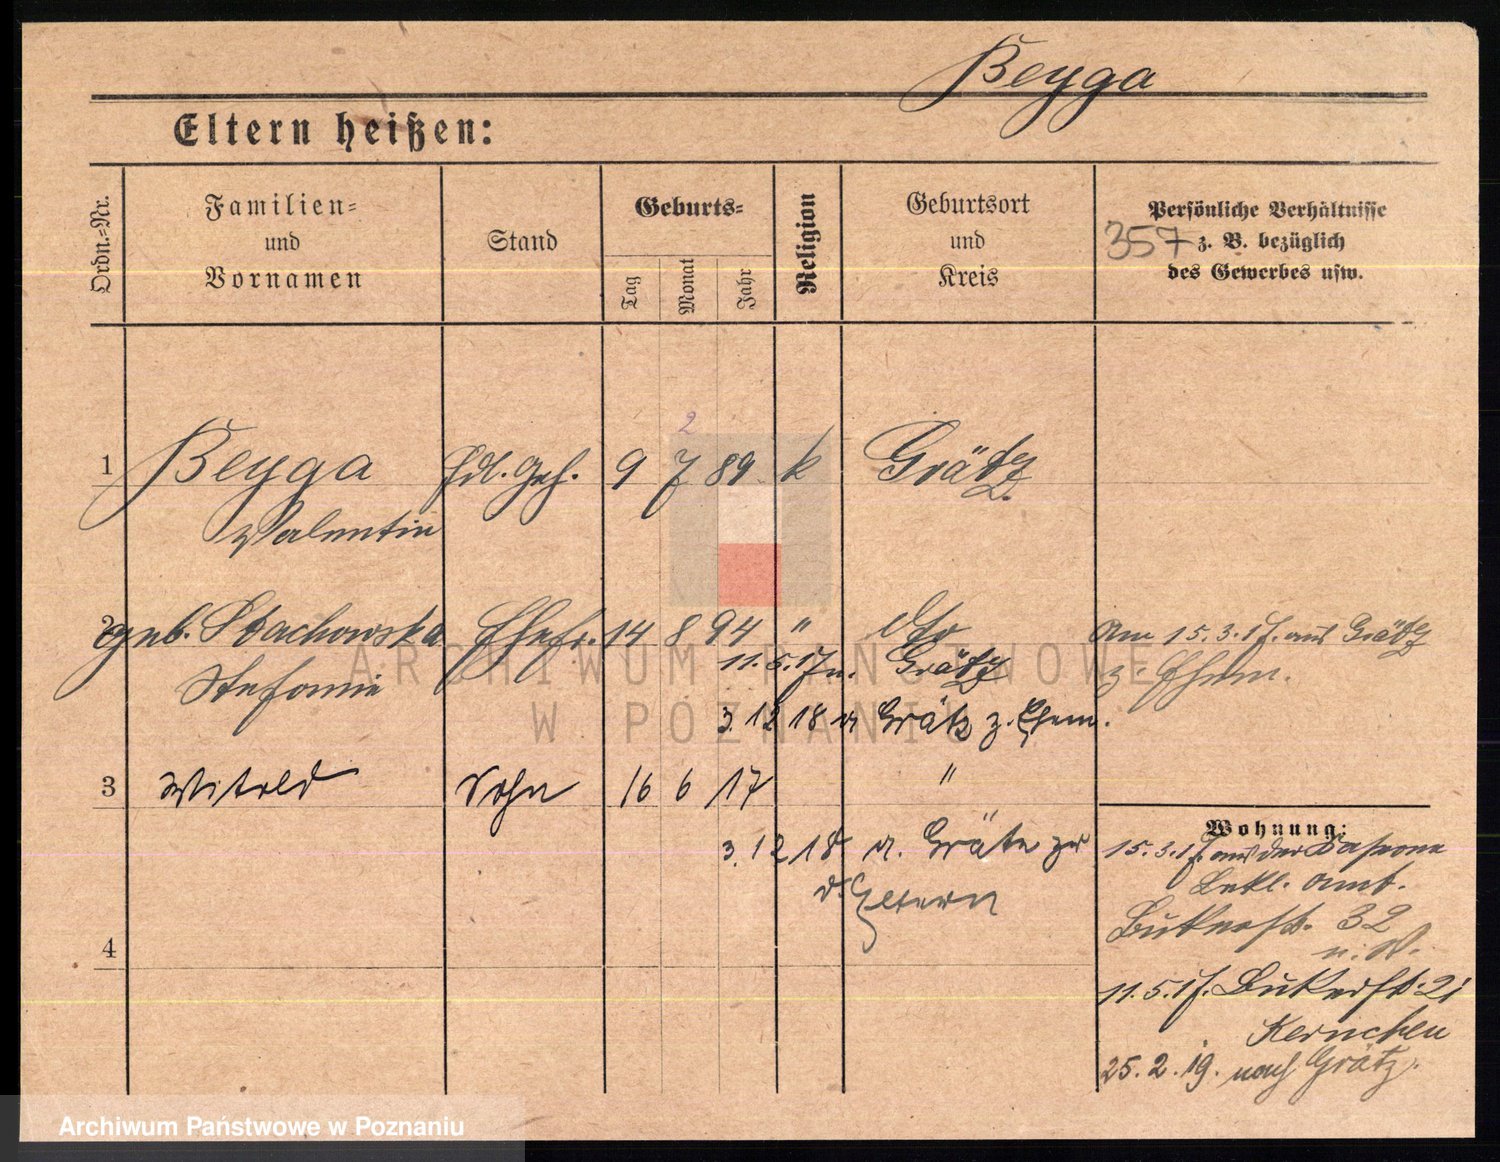 Beyga
Eltern heißen:
Ordn.-Nr.
Familien-
und
Vornamen
Stand
Geburts-
Tag
Monat
Jahr
Religion
Geburtsort
und
Kreis
Persönliche Verhältnisse
357 z. B. bezüglich
des Gewerbes usw.
2
1 Beyga Hdl. Geh. 9 7 89 k Grätz
Valentin
2 geb. Stachowska Ehefr. 14 8 94 " Dto
Am 15.3.17. aus Grätz
z Ehem.
Stefanie 11.5.17 n. Grätz
3.12 18 v Grätz z. Ehem.
3 Witold Sohn 16 6 17 "
3.12 18 v. Grätz zu
d. Eltern
4
Wohnung:
15.3.17. aus der Kaserne
Bekl. Amt.
Bukerstr. 32
11.5.17. Bukerstr. 21
25.2.19. nach Grätz.
ARCHIWUM PAŃSTWOWE
W POZNANIU
Archiwum Państwowe w Poznaniu